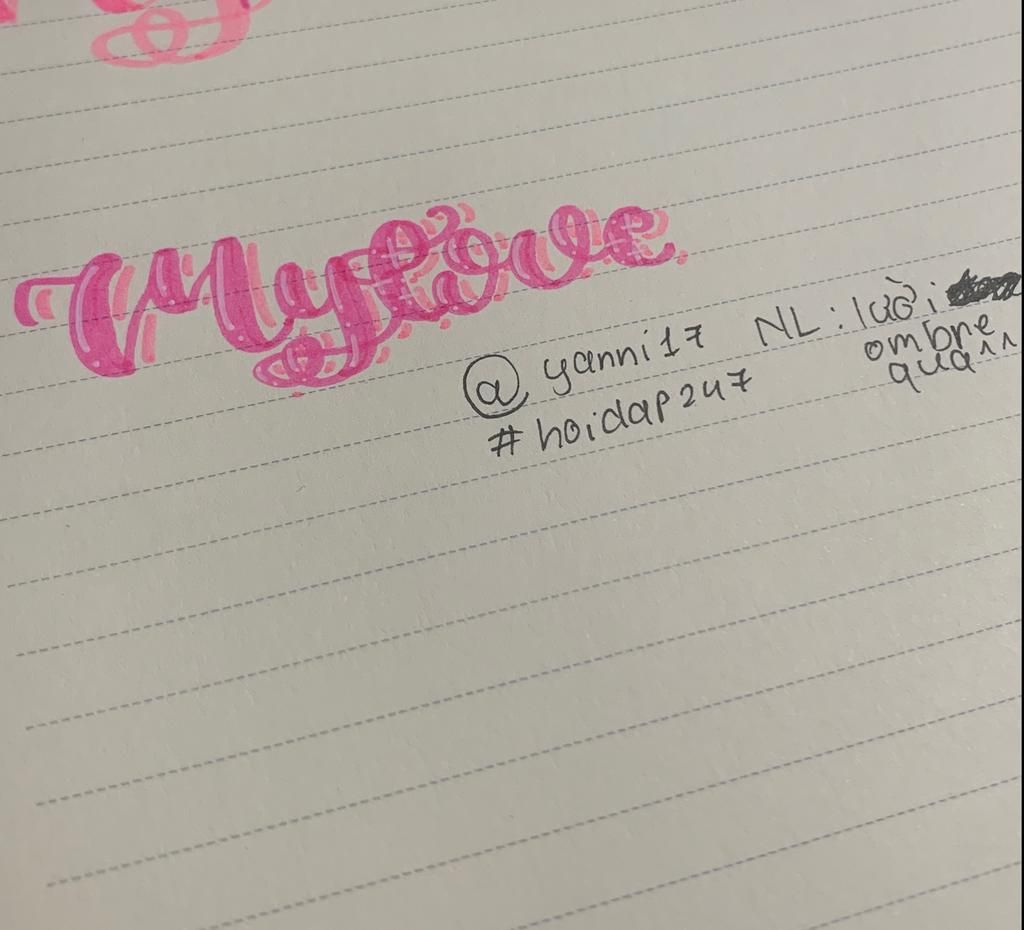 My Love
@yanni17 NL: lười
ombre
#hoidap247 quá^^